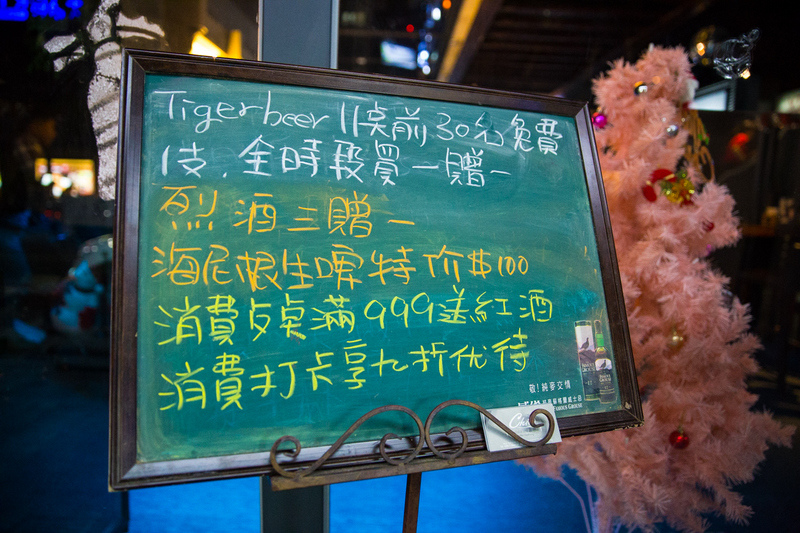 Tigerbeer 11点前30名免費
1支.全時段買一贈一
烈酒三贈一
海尼根生啤特价$100
消費桌滿999送紅酒
消費打卡享九折优待
敬!純麥交情